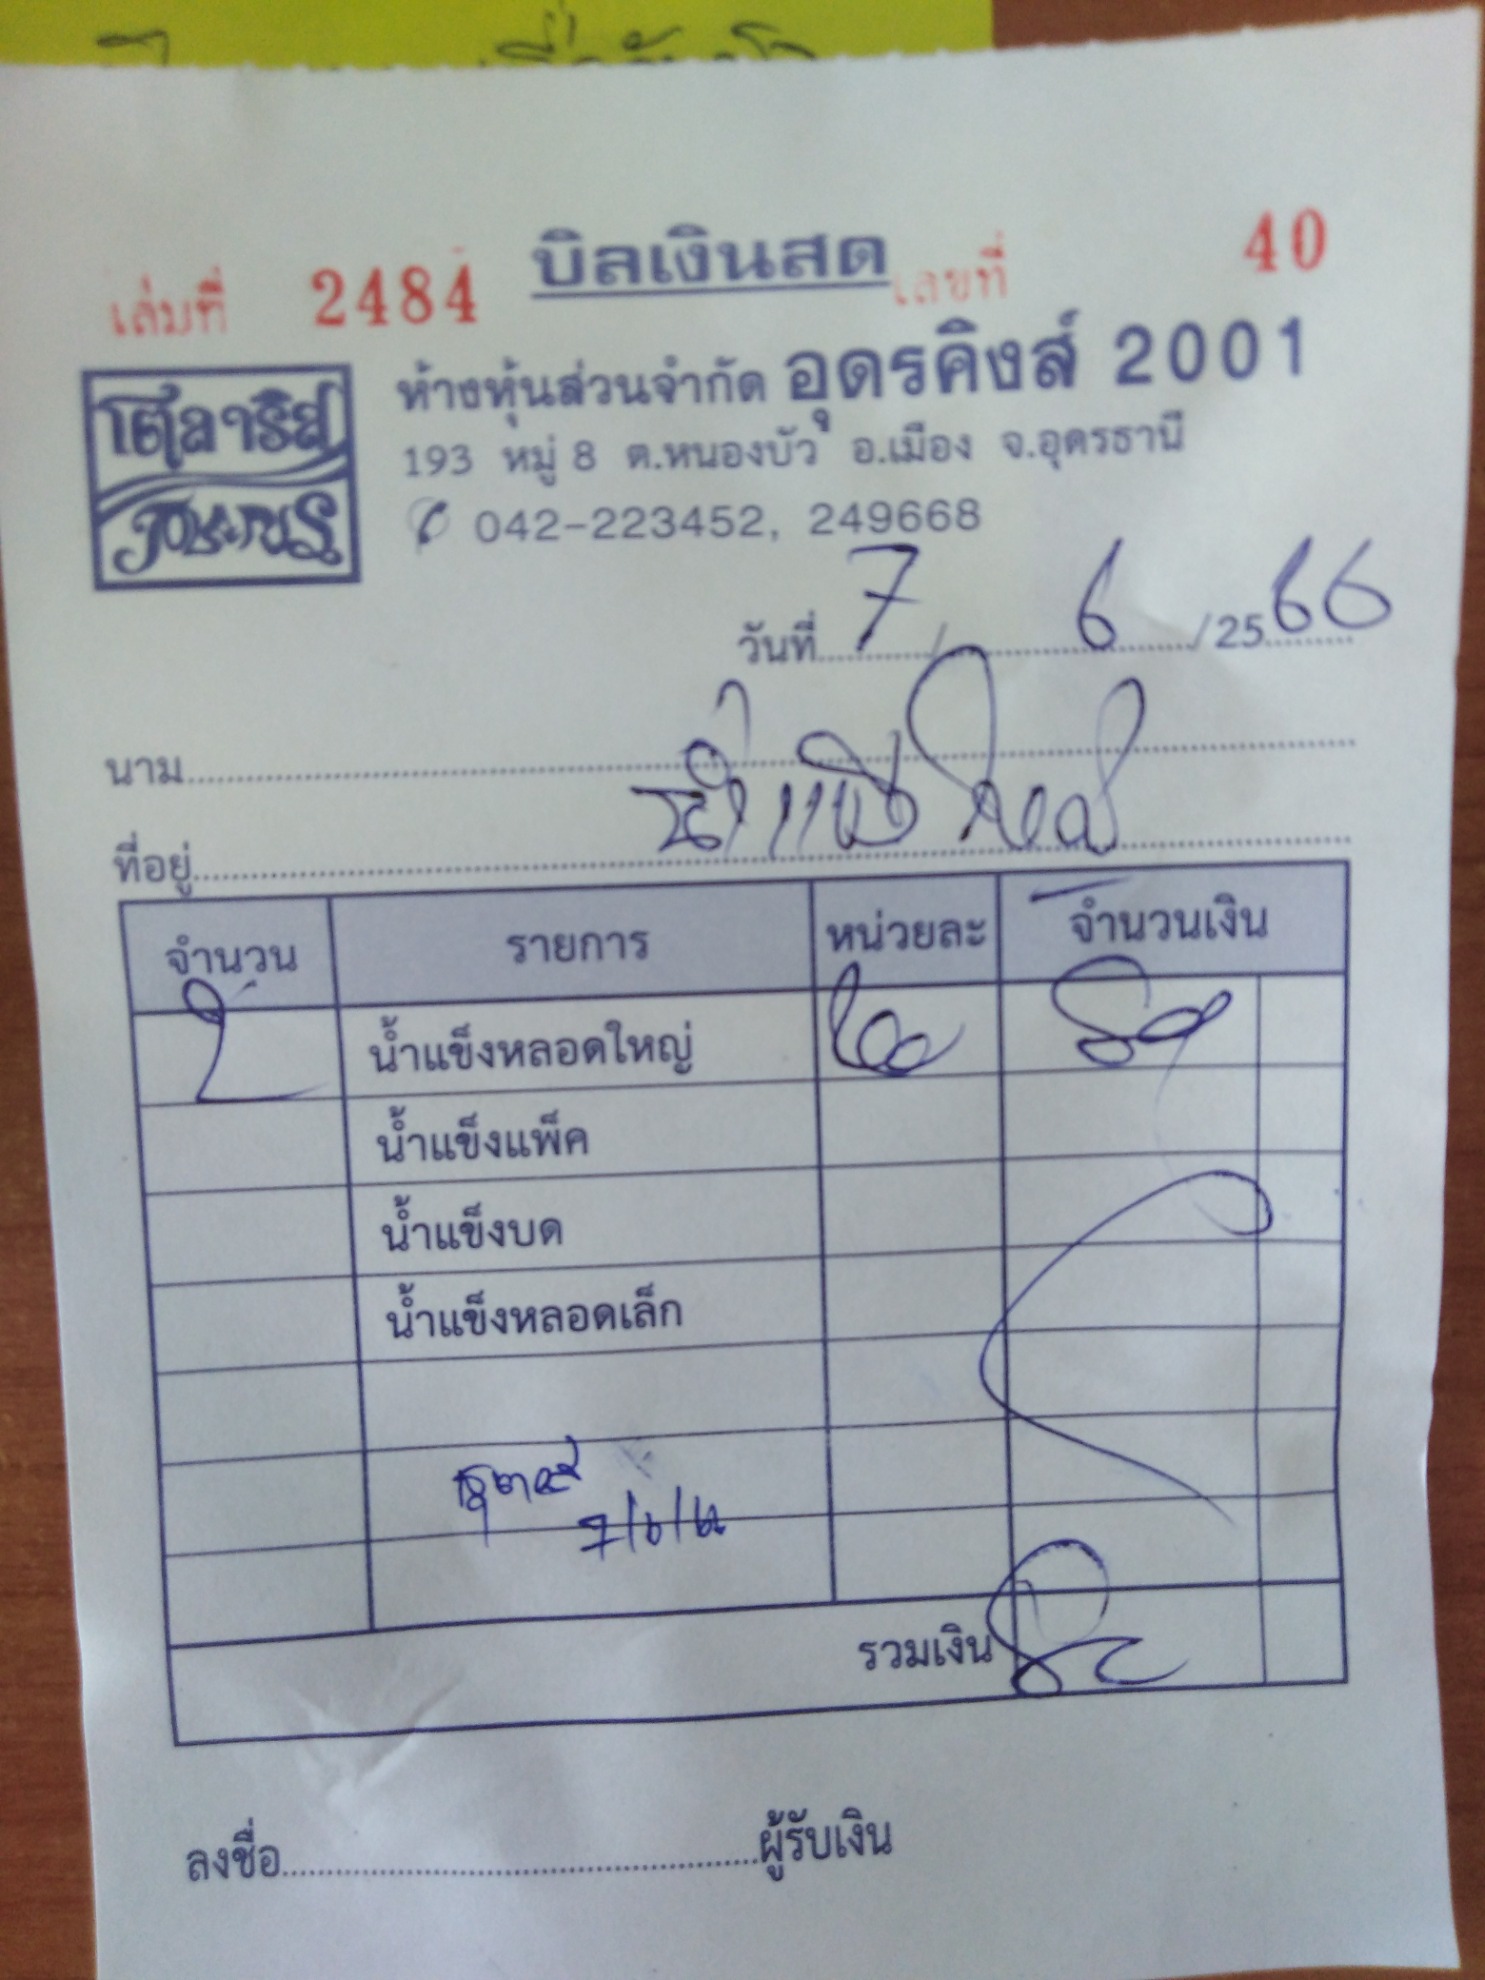 เล่มที่ 2484 บิลเงินสด เลขที่ 40
โตลาริส
ห้างหุ้นส่วนจำกัด อุดรคิงส์ 2001
193 หมู่ 8 ต.หนองบัว อ.เมือง จ.อุดรธานี
042-223452, 249668
วันที่ 7 / 6 / 2566
นาม
ที่อยู่
จำนวน รายการ หน่วยละ จำนวนเงิน
2 น้ำแข็งหลอดใหญ่
น้ำแข็งแพ็ค
น้ำแข็งบด
น้ำแข็งหลอดเล็ก
รวมเงิน
ลงชื่อ ผู้รับเงิน